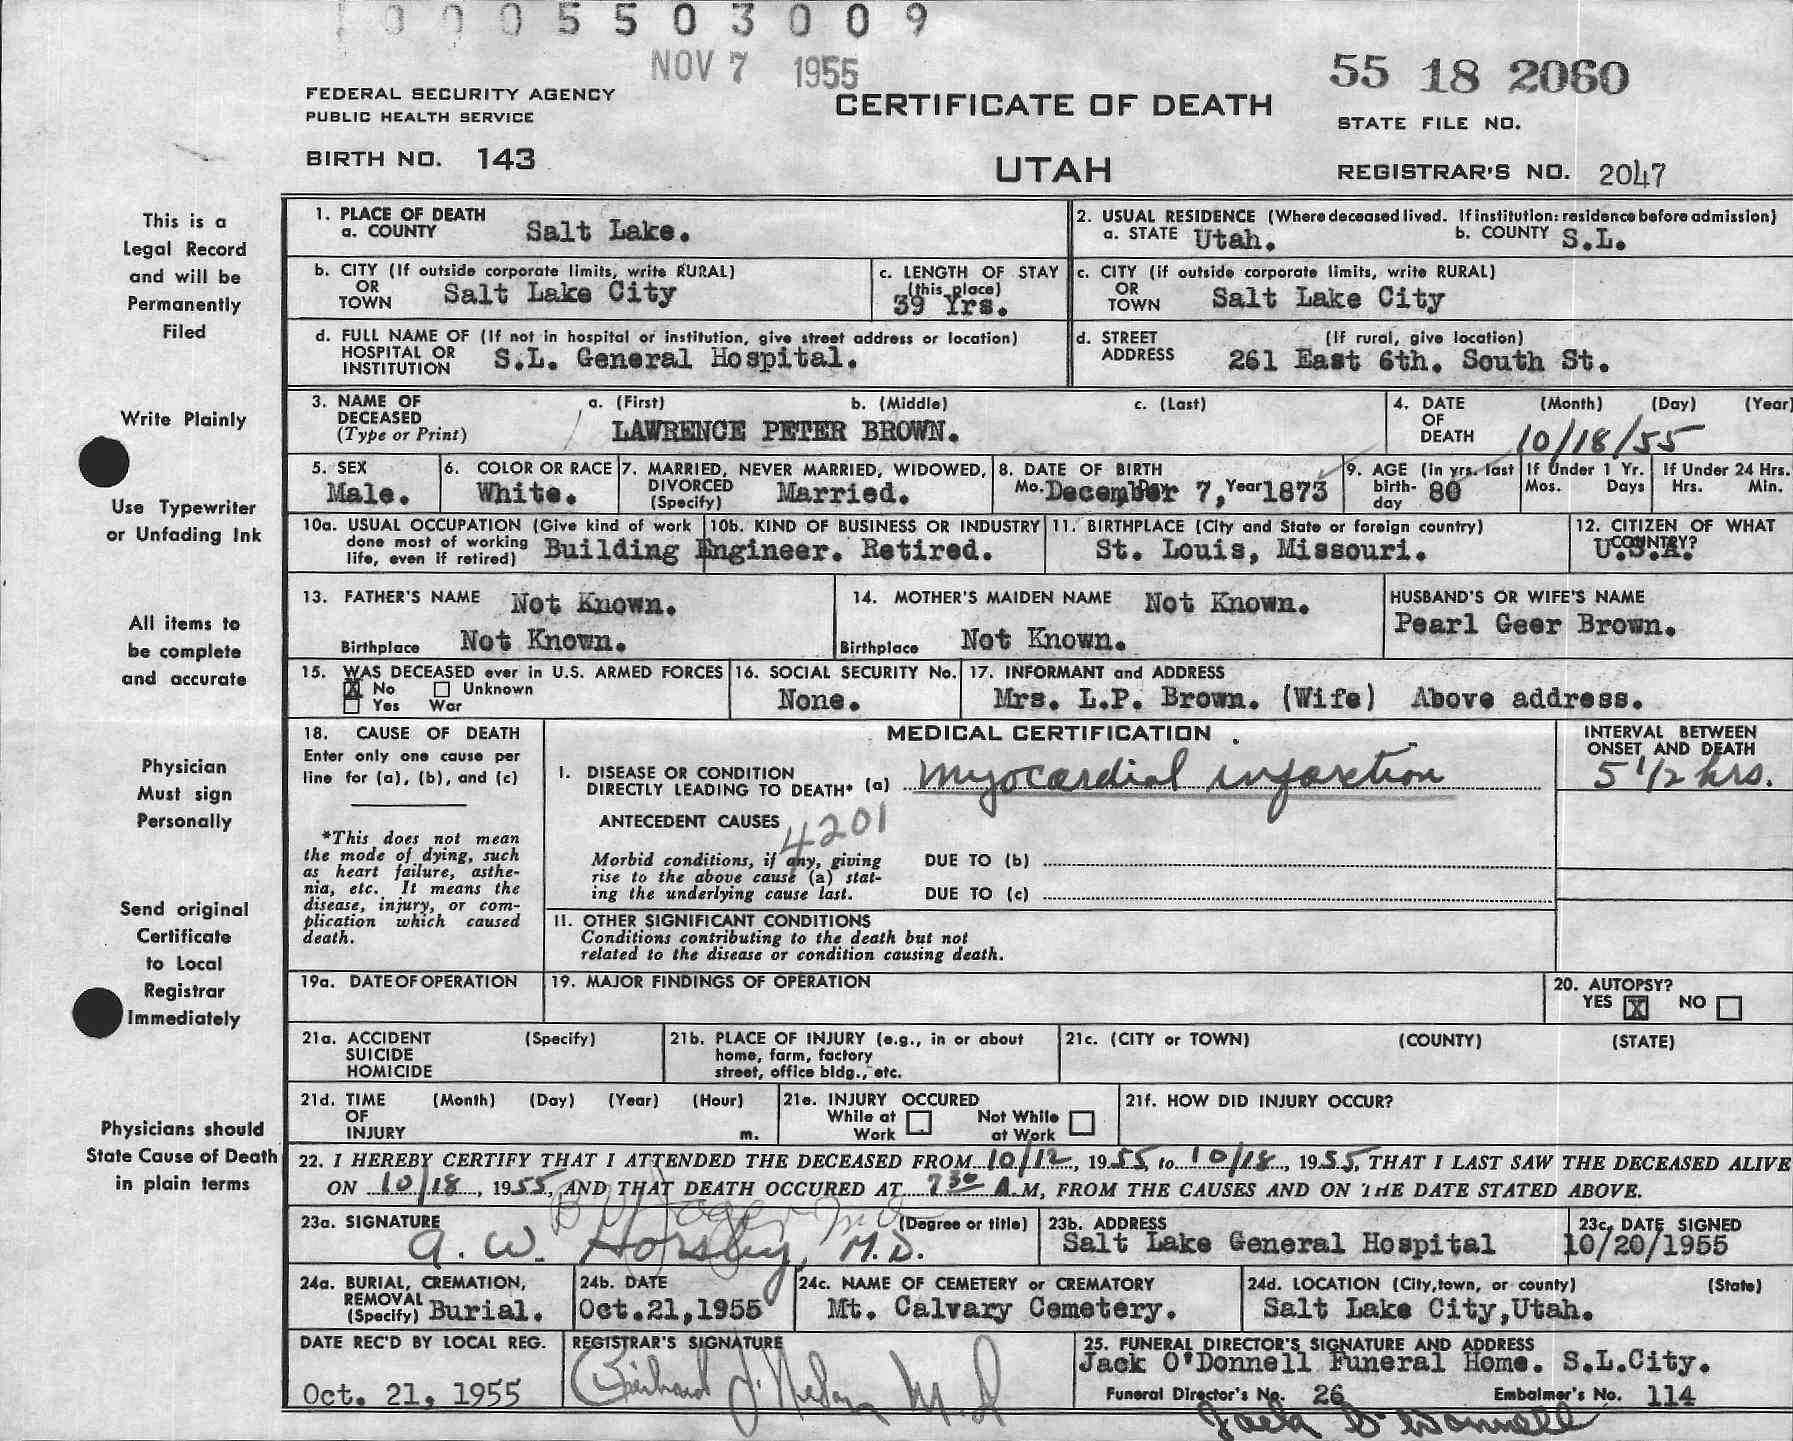 1 0 0 0 5 5 0 3 0 0 9
NOV 7 1955
55 18 2060
FEDERAL SECURITY AGENCY
PUBLIC HEALTH SERVICE
CERTIFICATE OF DEATH
STATE FILE NO.
BIRTH NO. 143
UTAH
REGISTRAR'S NO. 2047
This is a
Legal Record
and will be
Permanently
Filed
Write Plainly
Use Typewriter
or Unfading Ink
All items to
be complete
and accurate
Physician
Must sign
Personally
Send original
Certificate
to Local
Registrar
Immediately
Physicians should
State Cause of Death
in plain terms
1. PLACE OF DEATH
a. COUNTY Salt Lake.
2. USUAL RESIDENCE (Where deceased lived. If institution: residence before admission)
a. STATE Utah. b. COUNTY S.L.
b. CITY (If outside corporate limits, write RURAL)
OR
TOWN Salt Lake City
c. LENGTH OF STAY
(this place)
39 Yrs.
c. CITY (if outside corporate limits, write RURAL)
OR
TOWN Salt Lake City
d. FULL NAME OF (If not in hospital or institution, give street address or location)
HOSPITAL OR
INSTITUTION S.L. General Hospital.
d. STREET (If rural, give location)
ADDRESS 261 East 6th. South St.
3. NAME OF
DECEASED
(Type or Print)
a. (First) b. (Middle) c. (Last)
LAWRENCE PETER BROWN.
4. DATE (Month) (Day) (Year)
OF
DEATH 10/18/55
5. SEX
Male.
6. COLOR OR RACE
White.
7. MARRIED, NEVER MARRIED, WIDOWED,
DIVORCED
(Specify) Married.
8. DATE OF BIRTH
Mo. December Day 7, Year 1873
9. AGE (In yrs. last
birth-
day 80
If Under 1 Yr.
Mos. Days
If Under 24 Hrs.
Hrs. Min.
10a. USUAL OCCUPATION (Give kind of work
done most of working
life, even if retired) Building Engineer. Retired.
10b. KIND OF BUSINESS OR INDUSTRY
11. BIRTHPLACE (City and State or foreign country)
St. Louis, Missouri.
12. CITIZEN OF WHAT
COUNTRY?
U.S.A.
13. FATHER'S NAME Not Known.
Birthplace Not Known.
14. MOTHER'S MAIDEN NAME Not Known.
Birthplace Not Known.
HUSBAND'S OR WIFE'S NAME
Pearl Geer Brown.
15. WAS DECEASED ever in U.S. ARMED FORCES
X No Unknown
Yes War
16. SOCIAL SECURITY No.
None.
17. INFORMANT and ADDRESS
Mrs. L.P. Brown. (Wife) Above address.
18. CAUSE OF DEATH
Enter only one cause per
line for (a), (b), and (c)
*This does not mean
the mode of dying, such
as heart failure, asthe-
nia, etc. It means the
disease, injury, or com-
plication which caused
death.
MEDICAL CERTIFICATION
INTERVAL BETWEEN
ONSET AND DEATH
I. DISEASE OR CONDITION
DIRECTLY LEADING TO DEATH* (a) myocardial infarction
5 1/2 hrs.
ANTECEDENT CAUSES
4201
Morbid conditions, if any, giving
rise to the above cause (a) stat-
ing the underlying cause last.
DUE TO (b)
DUE TO (c)
II. OTHER SIGNIFICANT CONDITIONS
Conditions contributing to the death but not
related to the disease or condition causing death.
19a. DATE OF OPERATION
19. MAJOR FINDINGS OF OPERATION
20. AUTOPSY?
YES X NO
21a. ACCIDENT (Specify)
SUICIDE
HOMICIDE
21b. PLACE OF INJURY (e.g., in or about
home, farm, factory
street, office bldg., etc.
21c. (CITY or TOWN) (COUNTY) (STATE)
21d. TIME (Month) (Day) (Year) (Hour)
OF
INJURY m.
21e. INJURY OCCURED
While at Work Not While at Work
21f. HOW DID INJURY OCCUR?
22. I HEREBY CERTIFY THAT I ATTENDED THE DECEASED FROM 10/12, 1955 to 10/18, 1955, THAT I LAST SAW THE DECEASED ALIVE
ON 10/18, 1955, AND THAT DEATH OCCURED AT 7 30 A.M, FROM THE CAUSES AND ON THE DATE STATED ABOVE.
23a. SIGNATURE (Degree or title)
A. W. Horsley, M.D.
23b. ADDRESS
Salt Lake General Hospital
23c. DATE SIGNED
10/20/1955
24a. BURIAL, CREMATION,
REMOVAL
(Specify) Burial.
24b. DATE
Oct.21,1955
24c. NAME OF CEMETERY or CREMATORY
Mt. Calvary Cemetery.
24d. LOCATION (City, town, or county) (State)
Salt Lake City,Utah.
DATE REC'D BY LOCAL REG.
Oct. 21, 1955
REGISTRAR'S SIGNATURE
M.D
25. FUNERAL DIRECTOR'S SIGNATURE AND ADDRESS
Jack O'Donnell Funeral Home. S.L.City.
Funeral Director's No. 26 Embalmer's No. 114
Jack O'Donnell